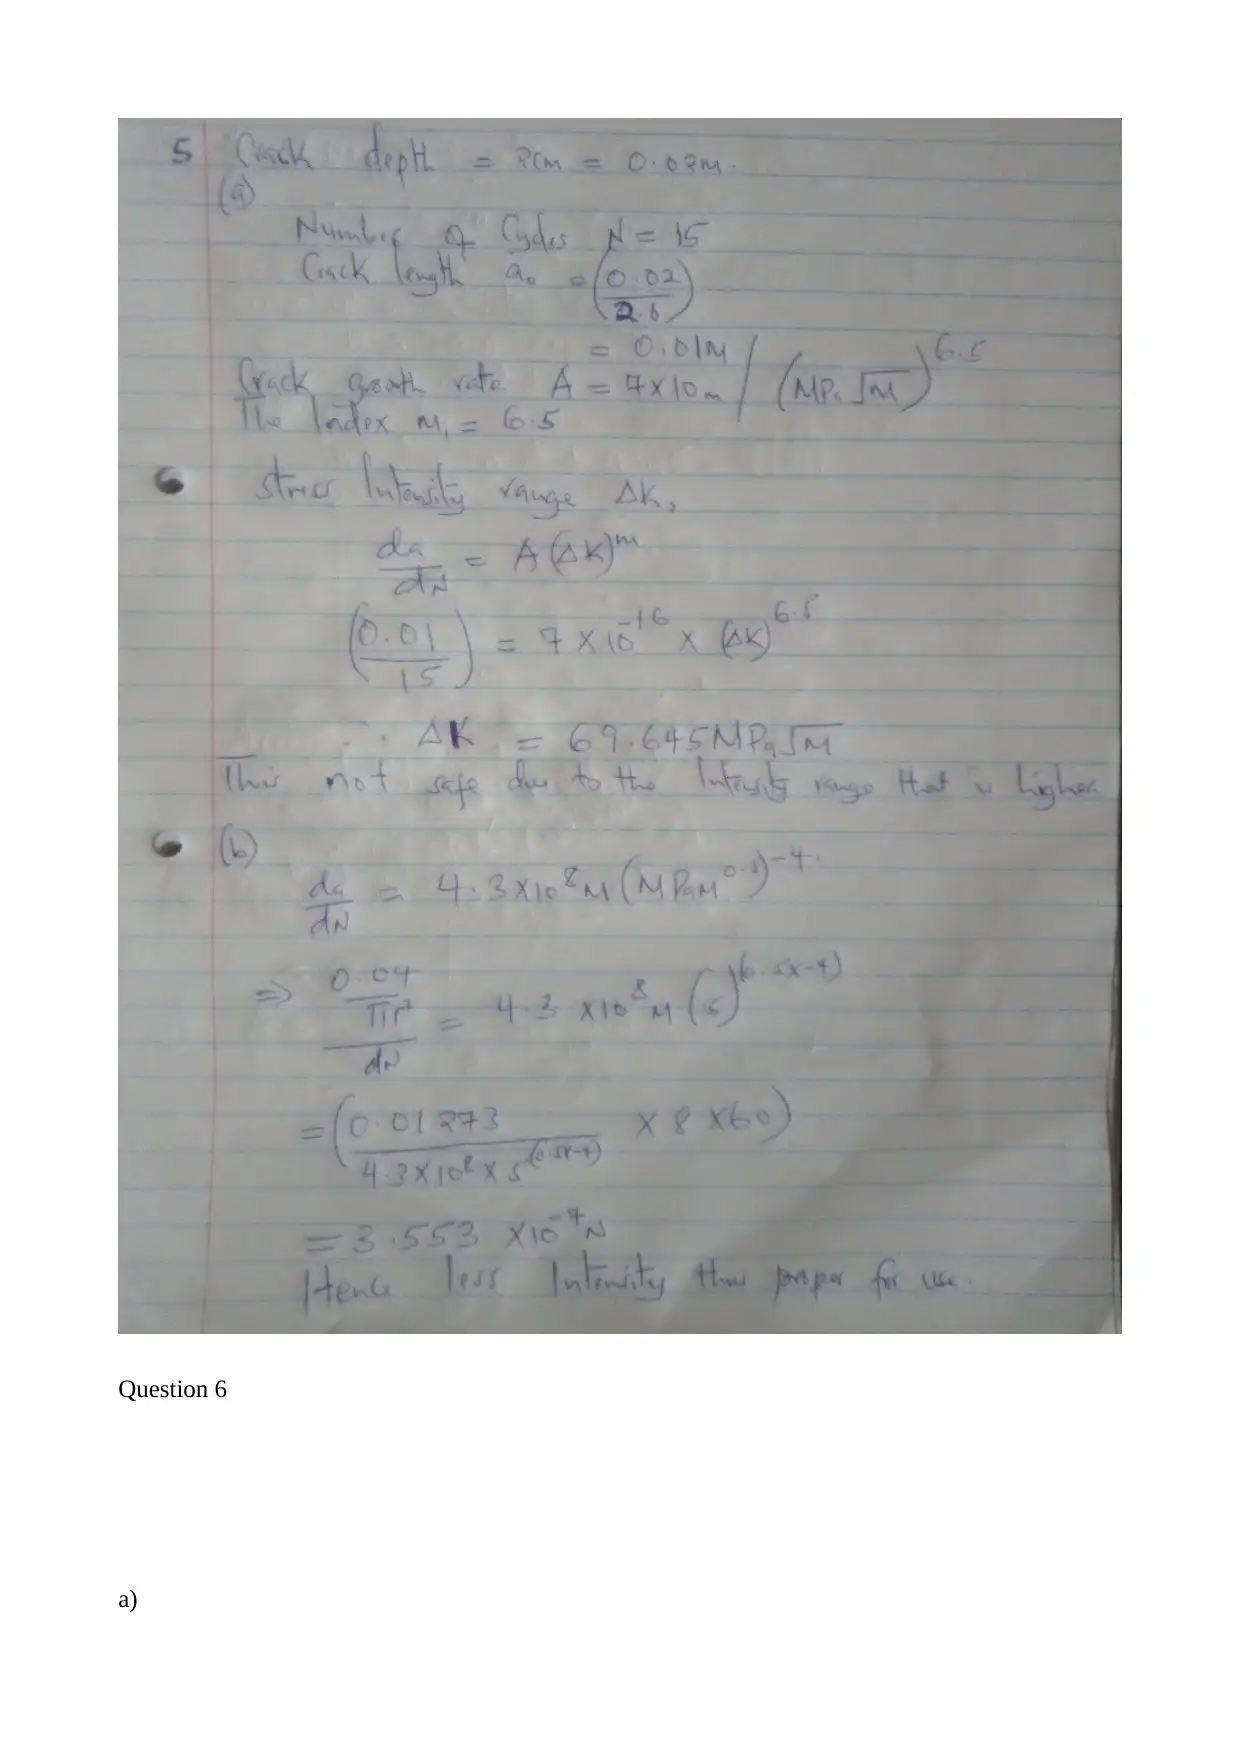 5 Crack depth = 2cm = 0.02m.
(a)
Number of Cycles N = 15
Crack length a₀ = (0.02/2.0)
= 0.01M
Crack growth rate A = 7x10 m / (MPa √M)^6.5
The Index M, = 6.5
stress Intensity range ΔK,
da/dN = A (ΔK)^m
(0.01/15) = 7 x 10^-16 x (ΔK)^6.5
∴ ΔK = 69.645MPa√M
This not safe due to the Intensity range that is higher
(b)
da/dN = 4.3x10^8 M (MPaM^0.5)^-4.
⇒ 0.04/πr²/dN = 4.3 x10^8 M (5)^(0.5x-4)
= (0.01273/4.3x10^8 x 5^(0.5x-4) x 8 x60)
= 3.553 x10^-7 N
Hence less Intensity thus proper for use.
Question 6
a)